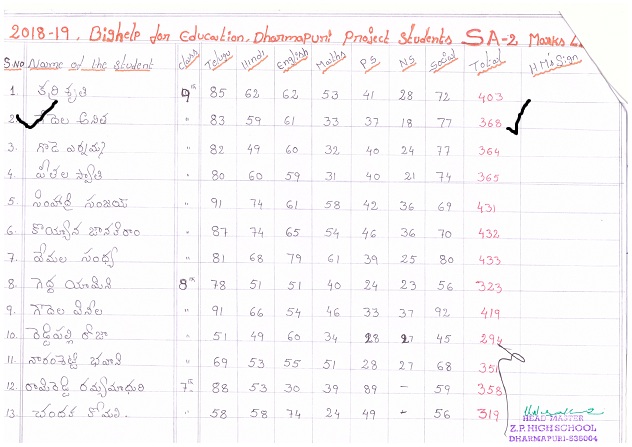 2018-19, Bighelp for Education, Dharmapuri Project Students SA-2 Marks
S.No Name of the Student class Telugu Hindi English Maths P.S N.S Social Total HM's Sign
1. కృతి 9th 85 62 62 53 41 28 72 403
2. గొదల అనిత " 83 59 61 33 37 18 77 368
3. " 82 49 60 32 40 24 77 364
4. పీతల స్వాతి " 80 60 59 31 40 21 74 365
5. సింహాద్రి సంజయ్ " 91 74 61 58 42 36 69 431
6. కొయ్యాన జానకిరాం " 87 74 65 54 46 36 70 432
7. వేమల సంధ్య " 81 68 79 61 39 25 80 433
8. గెద్ద యామిని 8th 78 51 51 40 24 23 56 323
9. గొదల వినీల " 91 66 54 46 33 37 92 419
10. రెడ్డిపల్లి రోజా " 51 49 60 34 28 27 45 294
11. భవాని " 69 53 55 51 28 27 68 351
12. రామిరెడ్డి రమ్యమాధురి 7th 88 53 30 39 89 - 59 358
13. చందక " 58 58 74 24 49 - 56 319
HEAD MASTER
Z.P. HIGH SCHOOL
DHARMAPURI-535004